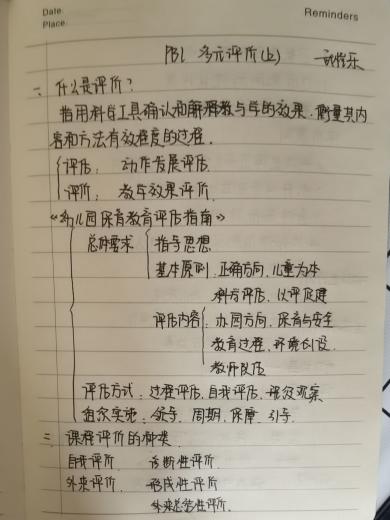 Date:
Place:
Reminders
PBL 多元评价(上)
一、什么是评价?
指用科学工具确认和解释教与学的效果,衡量其内
容和方法有效程度的过程.
评估: 动作发展评估.
评价: 教学效果评价.
《幼儿园保育教育评估指南》
总体要求 指导思想
基本原则:正确方向,儿童为本
科学评估,以评促建
评估内容:办园方向,保育与安全
教育过程,环境创设.
教师队伍
评估方式:过程评估,自我评估,班级观察
组织实施:领导、周期,保障,引导.
二、课程评价的种类
自我评价. 诊断性评价
外来评价. 形成性评价
外来总结性评价.